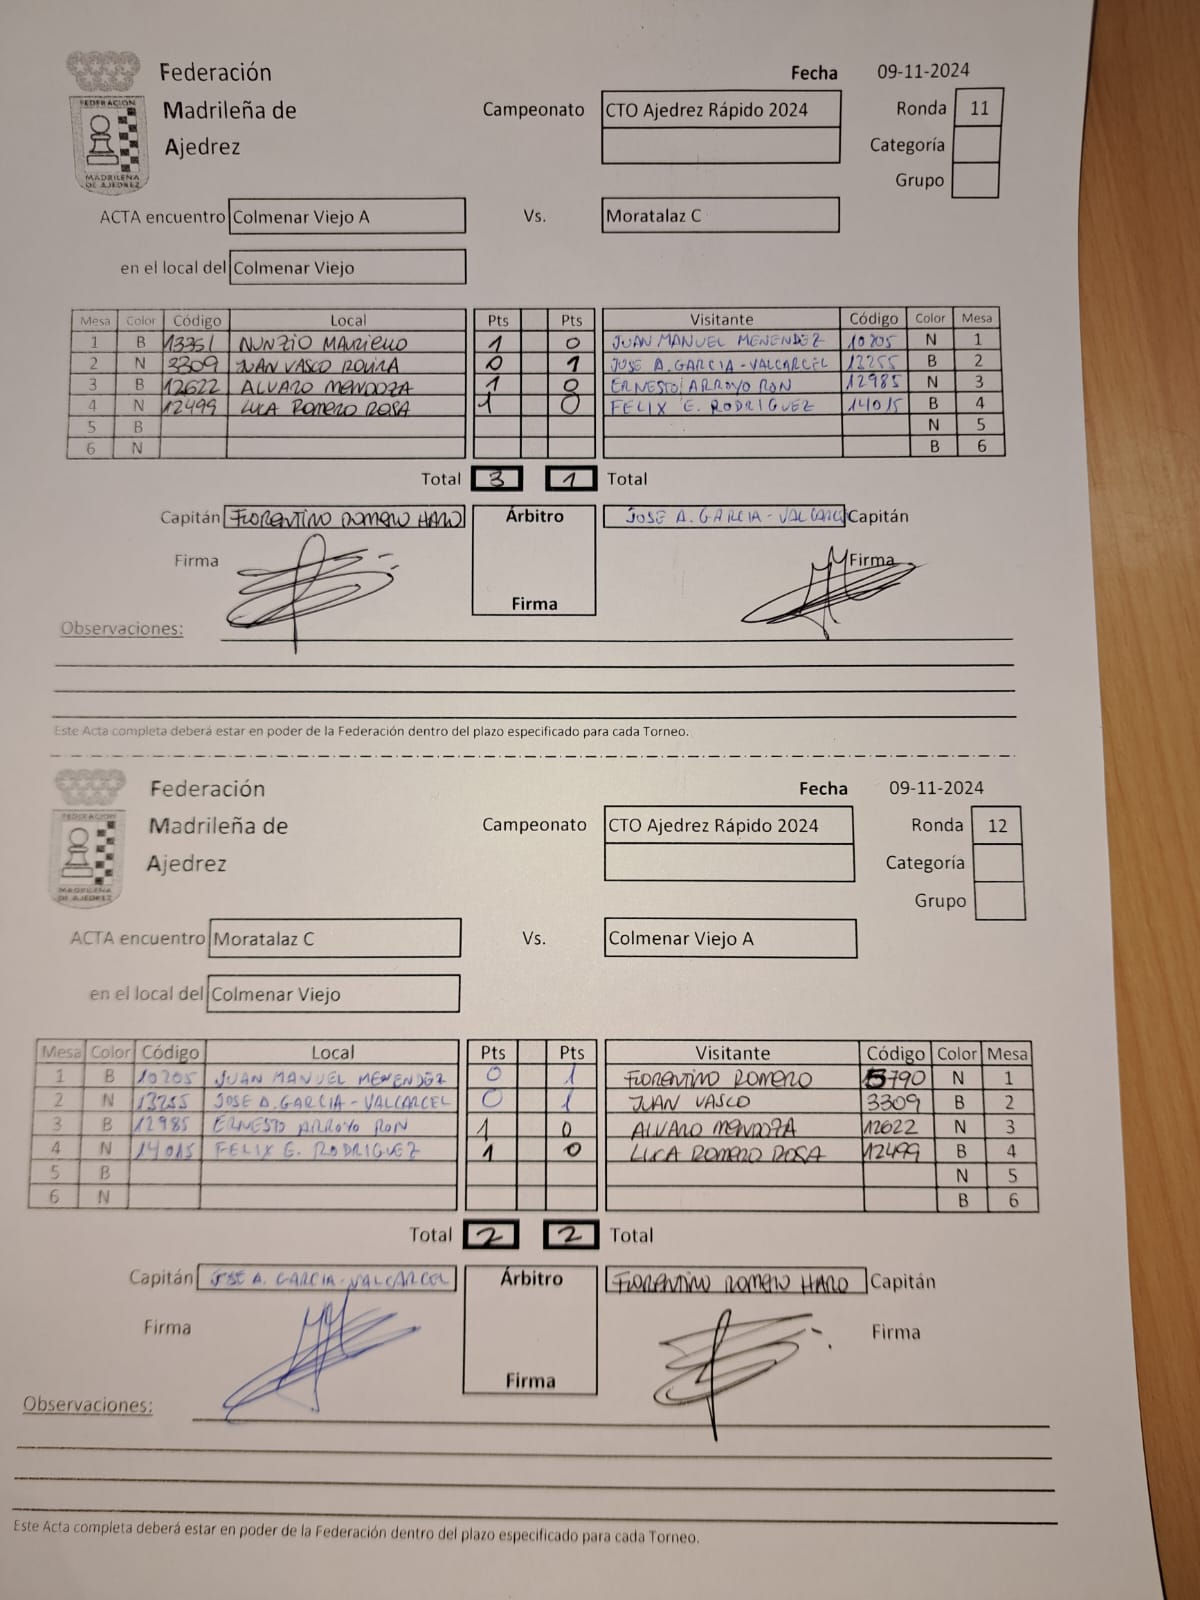 Federación Fecha 09-11-2024
Madrileña de Campeonato CTO Ajedrez Rápido 2024 Ronda 11
Ajedrez Categoría
Grupo
FEDERACION
MADRILEÑA
DE AJEDREZ
ACTA encuentro Colmenar Viejo A Vs. Moratalaz C
en el local del Colmenar Viejo
Mesa Color Código Local Pts Pts Visitante Código Color Mesa
1 B 13351 NUNZIO MAURIELLO 1 0 JUAN MANUEL MENENDEZ 10205 N 1
2 N 3309 JUAN VASCO ROVIRA 0 1 JOSE A. GARCIA - VALCARCEL 13255 B 2
3 B 12622 ALVARO MENDOZA 1 0 ERNESTO ARROYO RON 12985 N 3
4 N 12499 LUCA ROMERO ROSA 1 0 FELIX E. RODRIGUEZ 14015 B 4
5 B N 5
6 N B 6
Total 3 1 Total
Capitán FLORENTINO ROMERO HARO Árbitro JOSE A. GARCIA - VALCARCEL Capitán
Firma Firma
Firma
Observaciones:
Este Acta completa deberá estar en poder de la Federación dentro del plazo especificado para cada Torneo.
Federación Fecha 09-11-2024
Madrileña de Campeonato CTO Ajedrez Rápido 2024 Ronda 12
Ajedrez Categoría
Grupo
FEDERACION
MADRILEÑA
DE AJEDREZ
ACTA encuentro Moratalaz C Vs. Colmenar Viejo A
en el local del Colmenar Viejo
Mesa Color Código Local Pts Pts Visitante Código Color Mesa
1 B 10205 JUAN MANUEL MENENDEZ 0 1 FLORENTINO ROMERO 5790 N 1
2 N 13255 JOSE A. GARCIA - VALCARCEL 0 1 JUAN VASCO 3309 B 2
3 B 12985 ERNESTO ARROYO RON 1 0 ALVARO MENDOZA 12622 N 3
4 N 14015 FELIX E. RODRIGUEZ 1 0 LUCA ROMERO ROSA 12499 B 4
5 B N 5
6 N B 6
Total 2 2 Total
Capitán JOSE A. GARCIA - VALCARCEL Árbitro FLORENTINO ROMERO HARO Capitán
Firma Firma
Firma
Observaciones:
Este Acta completa deberá estar en poder de la Federación dentro del plazo especificado para cada Torneo.